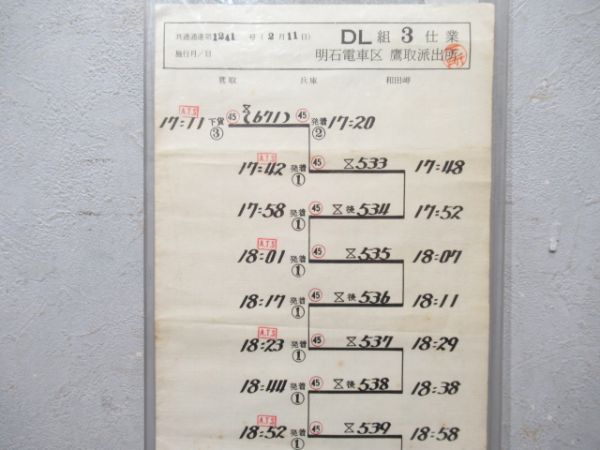 共通達第1241号(2月11日)
施行月/日
DL組 3仕業
明石電車区 鷹取派出所
鷹取 兵庫 和田岬
A.T.S
17=11 下貨③ 45 (671) 45 発着② 17=20
A.T.S
17=42 発着① 45 533 17=48
17=58 発着① 45 後534 17=52
A.T.S
18=01 発着① 45 535 18=07
18=17 発着① 45 後536 18=11
A.T.S
18=23 発着① 45 537 18=29
18=44 発着① 45 後538 18=38
A.T.S
18=52 発着① 45 539 18=58